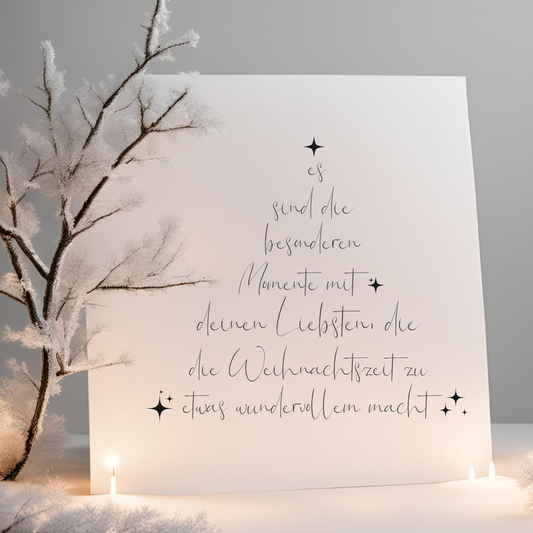 es
sind die
besonderen
Momente mit
deinen Liebsten, die
die Weihnachtszeit zu
etwas wundervollem macht